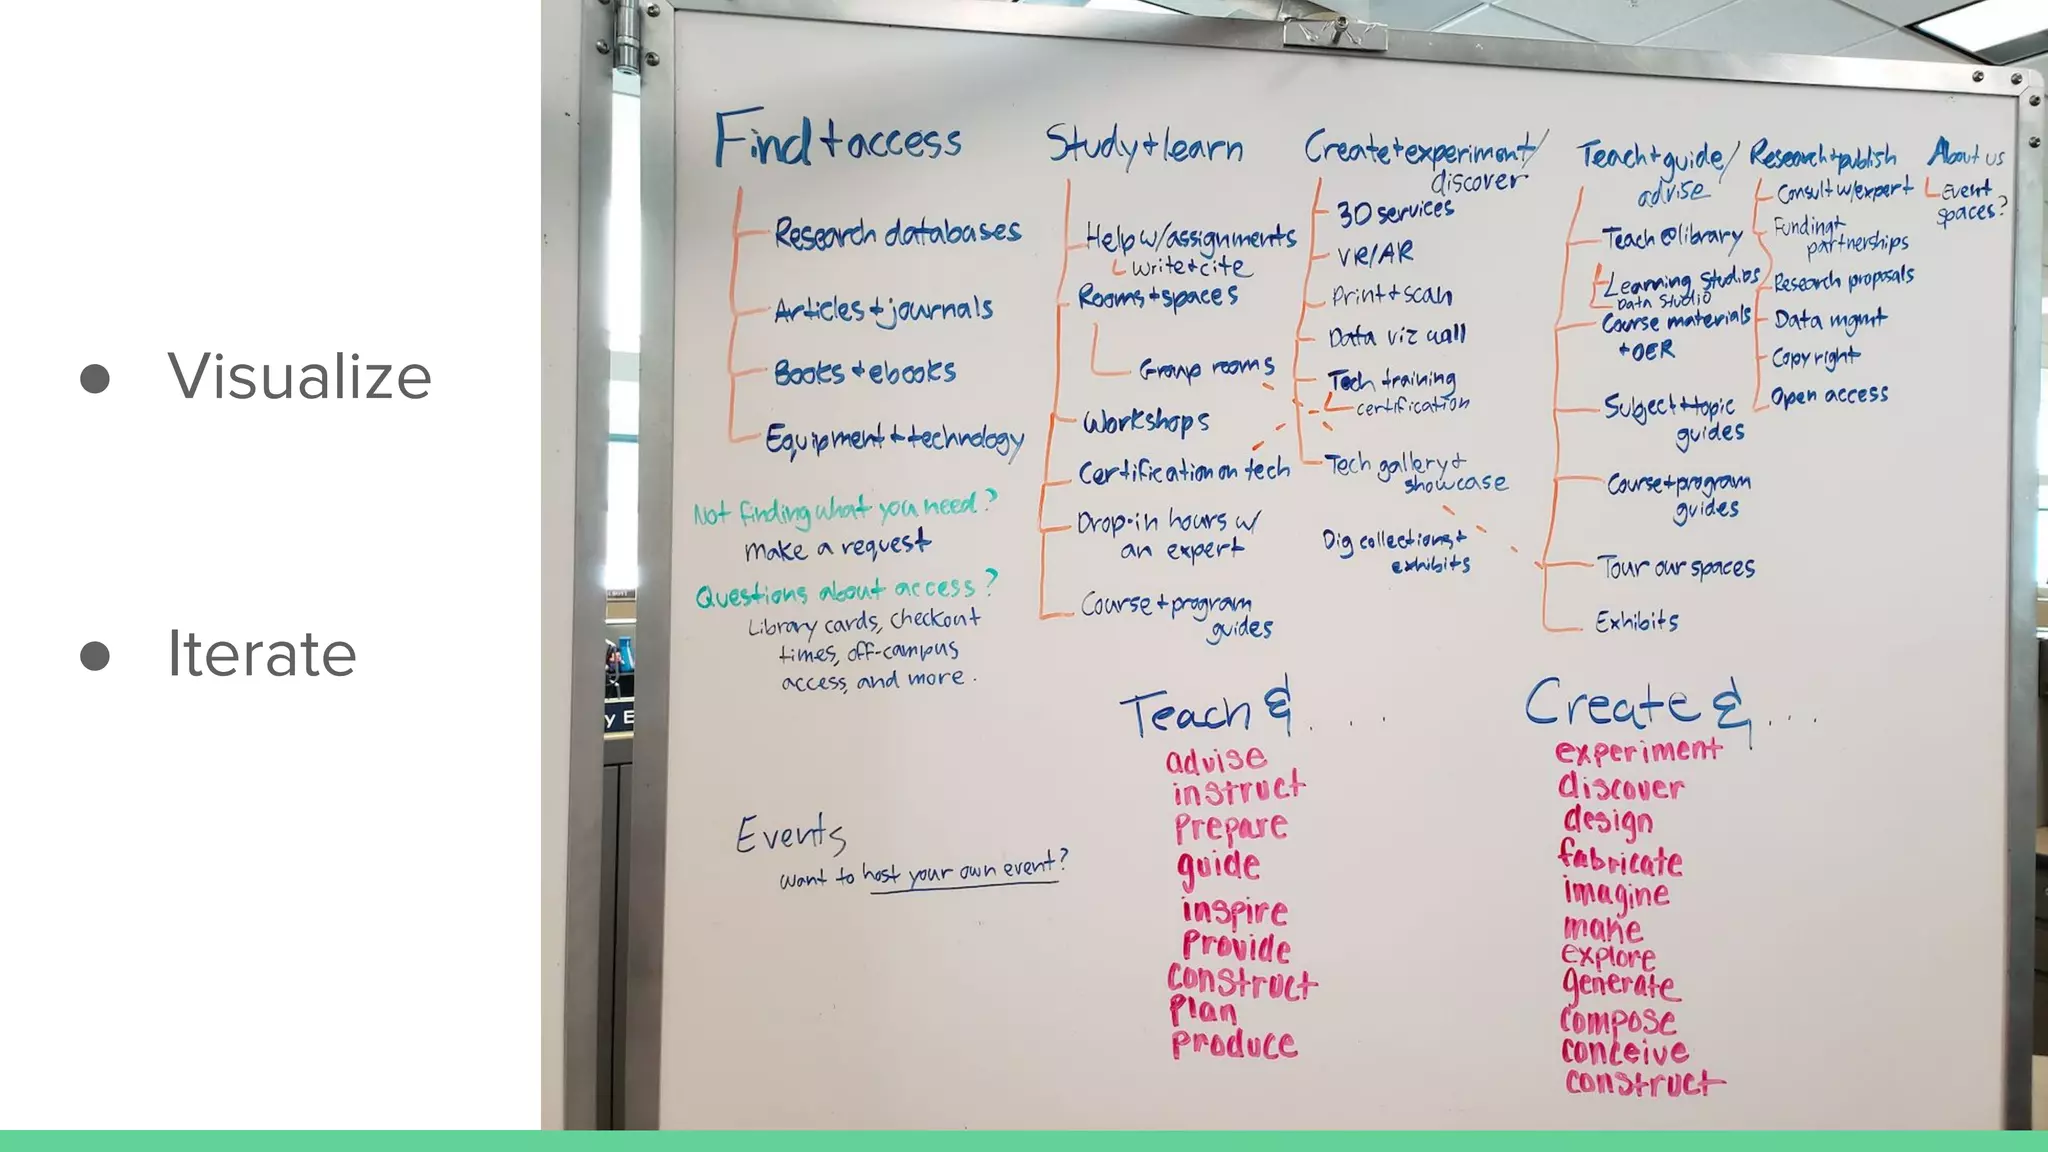 Visualize
Iterate
Find + access
Research databases
Articles + journals
Books + ebooks
Equipment + technology
Not finding what you need?
make a request
Questions about access?
Library cards, checkout
times, off-campus
access, and more.
Events
want to host your own event?
Study + learn
Help w/assignments
write + cite
Rooms + spaces
Group rooms
Workshops
Certification on tech
Drop-in hours w/
an expert
Course + program
guides
Create + experiment/
discover
3D services
VR/AR
Print + scan
Data viz wall
Tech training
certification
Tech gallery +
showcase
Dig collections +
exhibits
Teach + guide/
advise
Teach @ library
Learning Studios
Data Studio
Course materials
+ OER
Subject + topic
guides
Course + program
guides
Tour our spaces
Exhibits
Research + publish
Consult w/expert
Funding +
partnerships
Research proposals
Data mgmt
Copyright
Open access
About us
Event
spaces?
Teach & . . . .
advise
instruct
prepare
guide
inspire
provide
construct
plan
produce
Create & . . . .
experiment
discover
design
fabricate
imagine
make
explore
generate
compose
conceive
construct
y E